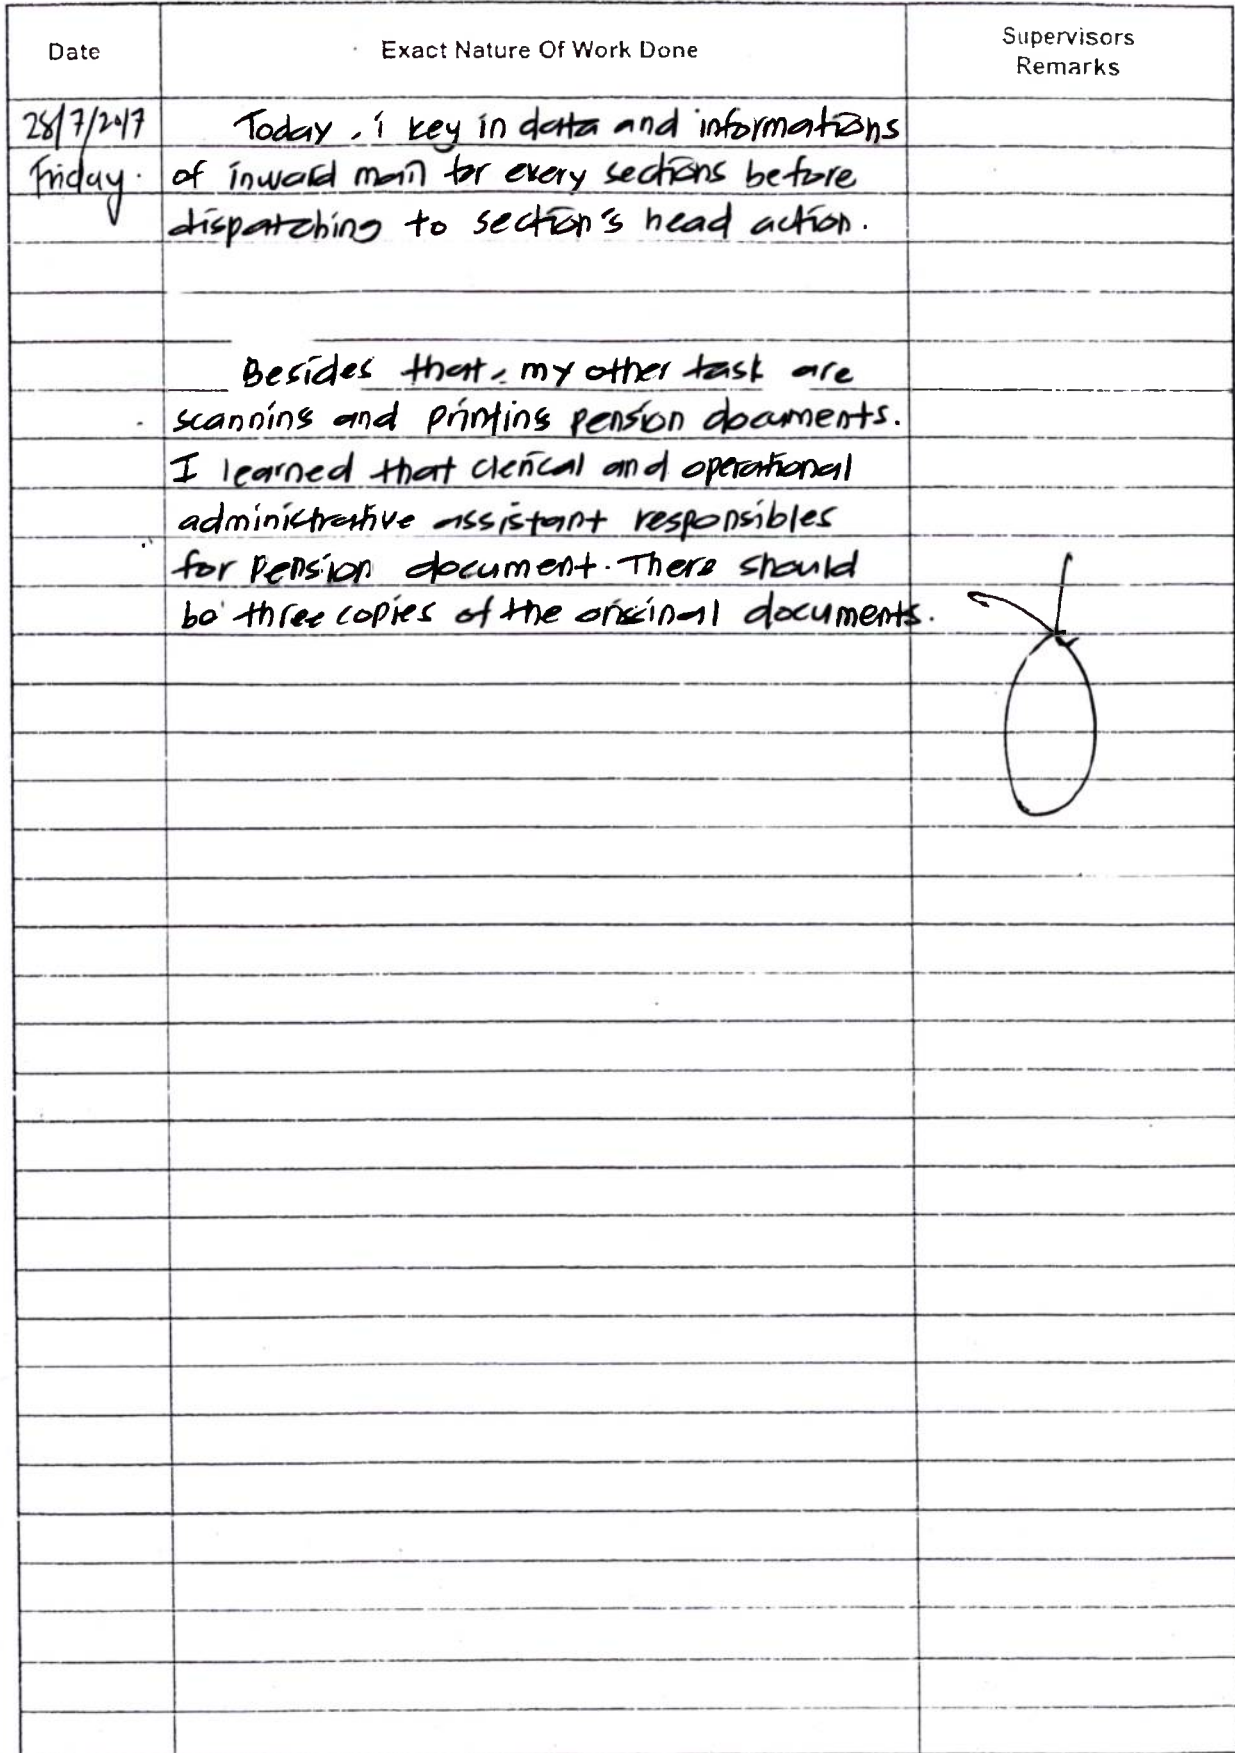 Date
Exact Nature Of Work Done
Supervisors
Remarks
28/7/2017
Friday.
Today, i key in data and informations
of inward mail for every sections before
dispatching to section's head action.
Besides that, my other task are
scanning and printing pension documents.
I learned that clerical and operational
administrative assistant responsibles
for Pension document. There should
be three copies of the original documents.